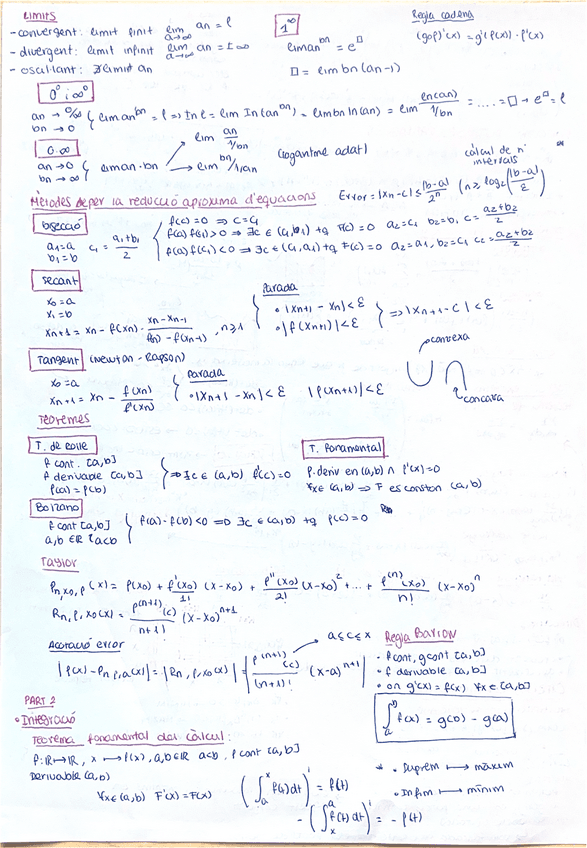 LIMITS
- convergent: limit finit lim an = l
a→∞
- divergent: limit infinit lim an = ±∞
a→∞
- oscil·lant: ∄ limit an
1^∞
lim an^bn = e^□
□ = lim bn (an-1)
Regla cadena
(gof)'(x) = g'(f(x))·f'(x)
0⁰ i ∞⁰
an → 0/∞
bn → 0
{ lim an^bn = l => ln l = lim ln(an^bn) = lim bn ln(an) = lim ln(an)/1/bn = .... = □ → e^□ = l
0·∞
an → 0
bn → ∞
{ lim an·bn
lim an/1/bn
lim bn/1/an
(logaritme adalt)
càlcul de nº intervals
Mètodes per la reducció aproxima d'equacions
Error = |xn - c| ≤ |b-a|/2^n (n ≥ log₂(|b-a|/ε)
Bisecció
a₁ = a
b₁ = b
c₁ = a₁+b₁/2
f(c) = 0 => c = c₁
f(a) f(b₁) > 0 => ∃c ∈ (c₁,b₁) tq f(c) = 0 a₂ = c₁ b₂ = b₁ c = a₂+b₂/2
f(a) f(c₁) < 0 => ∃c ∈ (c₁,a₁) tq f(c) = 0 a₂ = a₁, b₂ = c₁ c₂ = a₂+b₂/2
Secant
x₀ = a
x₁ = b
xn+1 = xn - f(xn)· xn - xn-1 / f(xn) - f(xn-1), n ≥ 1
Parada
• |xn+1 - xn| < ε
• |f(xn+1)| < ε
=> |xn+1 - c| < ε
Tangent (Newton - Rapson)
x₀ = a
xn+1 = xn - f(xn)/f'(xn)
Parada
• |xn+1 - xn| < ε |f(xn+1)| < ε
convexa
concava
Teoremes
T. de Rolle
f cont. [a,b]
f derivable [a,b]
f(a) = f(b)
=> ∃c ∈ (a,b) f'(c) = 0
T. Fonamental
f. deriv en (a,b) ∩ f'(x) = 0
∀x ∈ (a,b) => F es constan (a,b)
Bolzano
f cont [a,b]
a,b ∈ ℝ i a<b
f(a)·f(b) < 0 => ∃c ∈ (a,b) tq f(c) = 0
Taylor
Pn,x₀,f (x) = f(x₀) + f'(x₀)/1! (x-x₀) + f''(x₀)/2! (x-x₀)² + ... + f^(n)(x₀)/n! (x-x₀)^n
Rn,f,x₀(x) = f^(n+1)(c)/n+1! (x-x₀)^n+1
Acotació error
a ≤ c ≤ x
|f(x) - Pn f,a(x)| = |Rn,f,x₀(x)| = |f^(n+1)(c)/(n+1)! (x-a)^n+1|
Regla Barrow
• f cont, g cont [a,b]
• f derivable [a,b]
• on g'(x) = f(x) ∀x ∈ [a,b]
∫ₐᵇ f(x) = g(b) - g(a)
PART 2
• Integració
Teorema fonamental del càlcul:
f: ℝ↦ℝ, x ↦ f(x), a,b ∈ ℝ a<b, f cont [a,b]
Derivable (a,b)
∀x ∈ (a,b) F'(x) = F(x)
(∫ₐˣ f(t)dt)' = f(t)
-(∫ₓᵃ f(t)dt)' = - f(t)
* • Suprem ↦ màxim
• Infim ↦ mínim